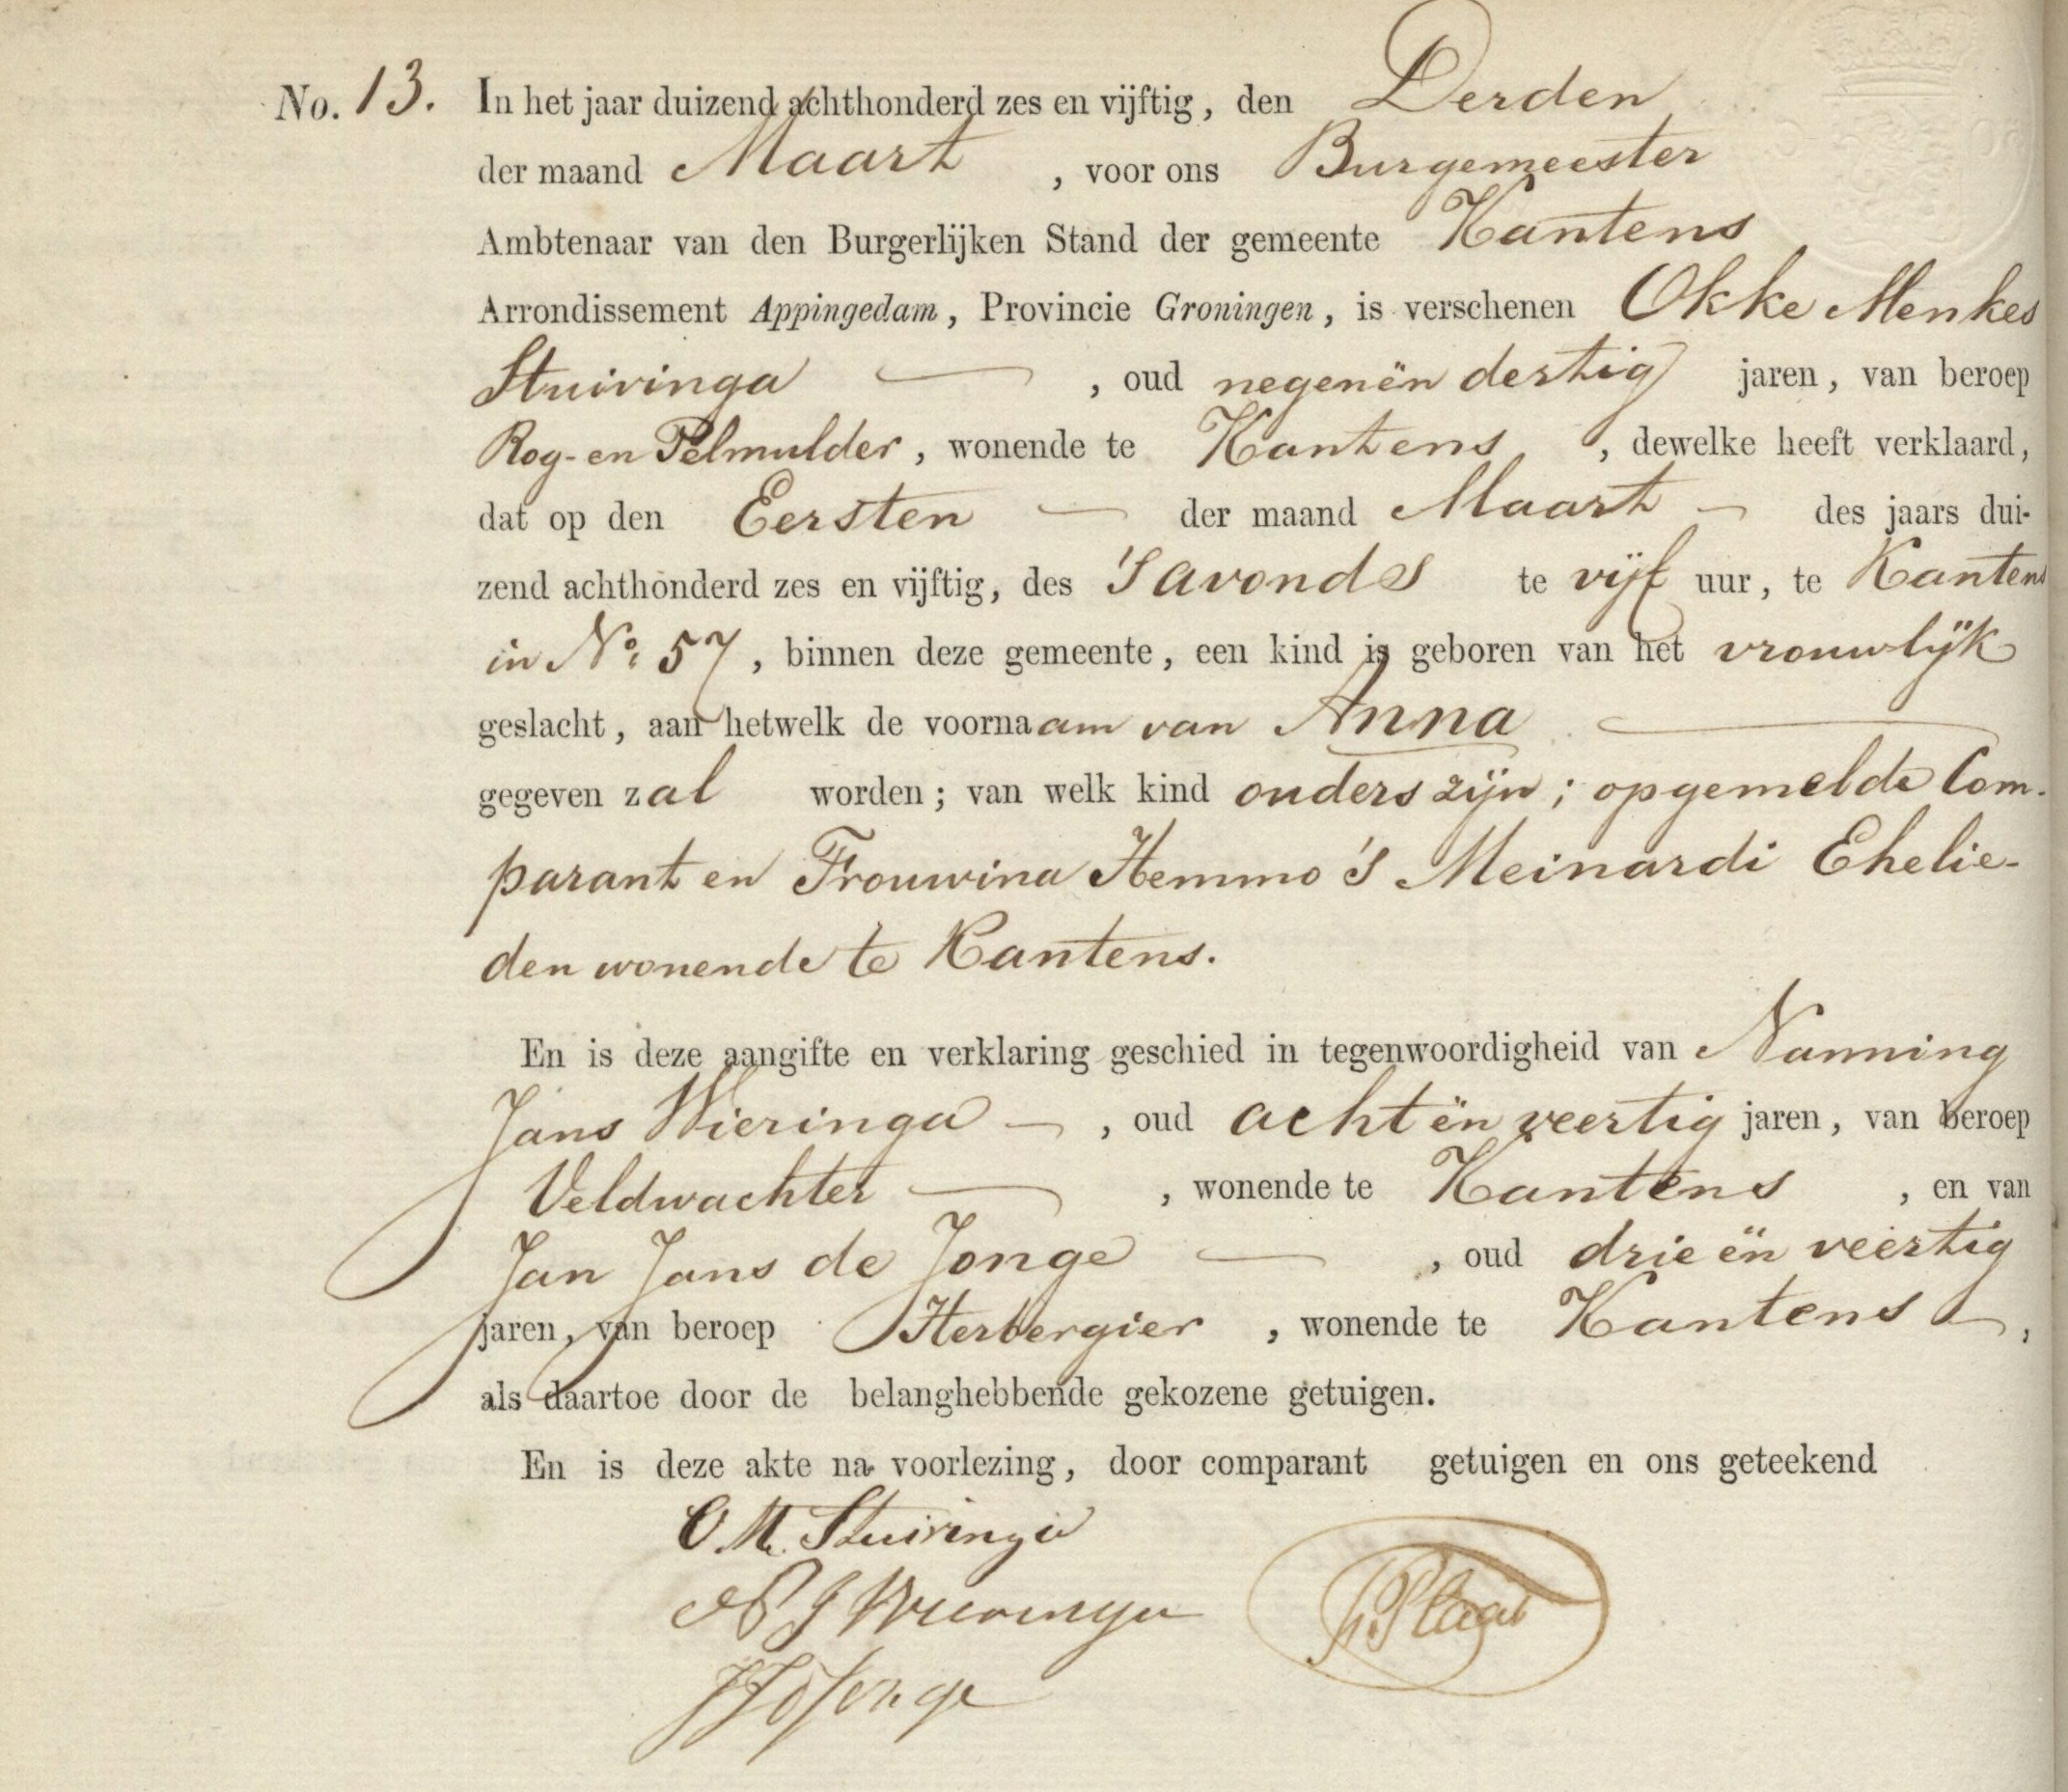 No. 13. In het jaar duizend achthonderd zes en vijftig, den Derden
der maand Maart , voor ons Burgemeester
Ambtenaar van den Burgerlijken Stand der gemeente Kantens
Arrondissement Appingedam, Provincie Groningen, is verschenen Okke Menkes
Stuivinga — , oud negenën dertig jaren, van beroep
Rog- en Pelmulder, wonende te Kantens , dewelke heeft verklaard,
dat op den Eersten — der maand Maart — des jaars dui-
zend achthonderd zes en vijftig, des 'S avonds te vijf uur, te Kantens
in No. 57, binnen deze gemeente, een kind is geboren van het vrouwlijk
geslacht, aan hetwelk de voornaam van Anna —
gegeven zal worden; van welk kind ouders zijn; opgemelde Com-
parant en Frouwina Hemmo's Meinardi Ehelie-
den wonende te Kantens.
En is deze aangifte en verklaring geschied in tegenwoordigheid van Nanning
Jans Wieringa — , oud acht ën veertig jaren, van beroep
Veldwachter — , wonende te Kantens , en van
Jan Jans de Jonge — , oud drie ën veertig
jaren, van beroep Herbergier , wonende te Kantens — ,
als daartoe door de belanghebbende gekozene getuigen.
En is deze akte na voorlezing, door comparant getuigen en ons geteekend
O. M. Stuivinga
N J Wieringa
J J d Jonge